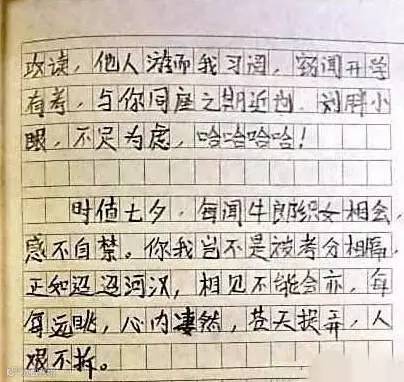 攻读，他人游而我习酒，窃闻开学
有考，与你同座之期近到，刘胖小
眼，不足为虑，哈哈哈哈！
时值七夕，每闻牛郎织女相会，
感不自禁。你我岂不是被考分相隔，
正如迢迢河汉，相见不能会亦，每
每远眺，心内凄然，苍天捉弄，人
艰不拆。